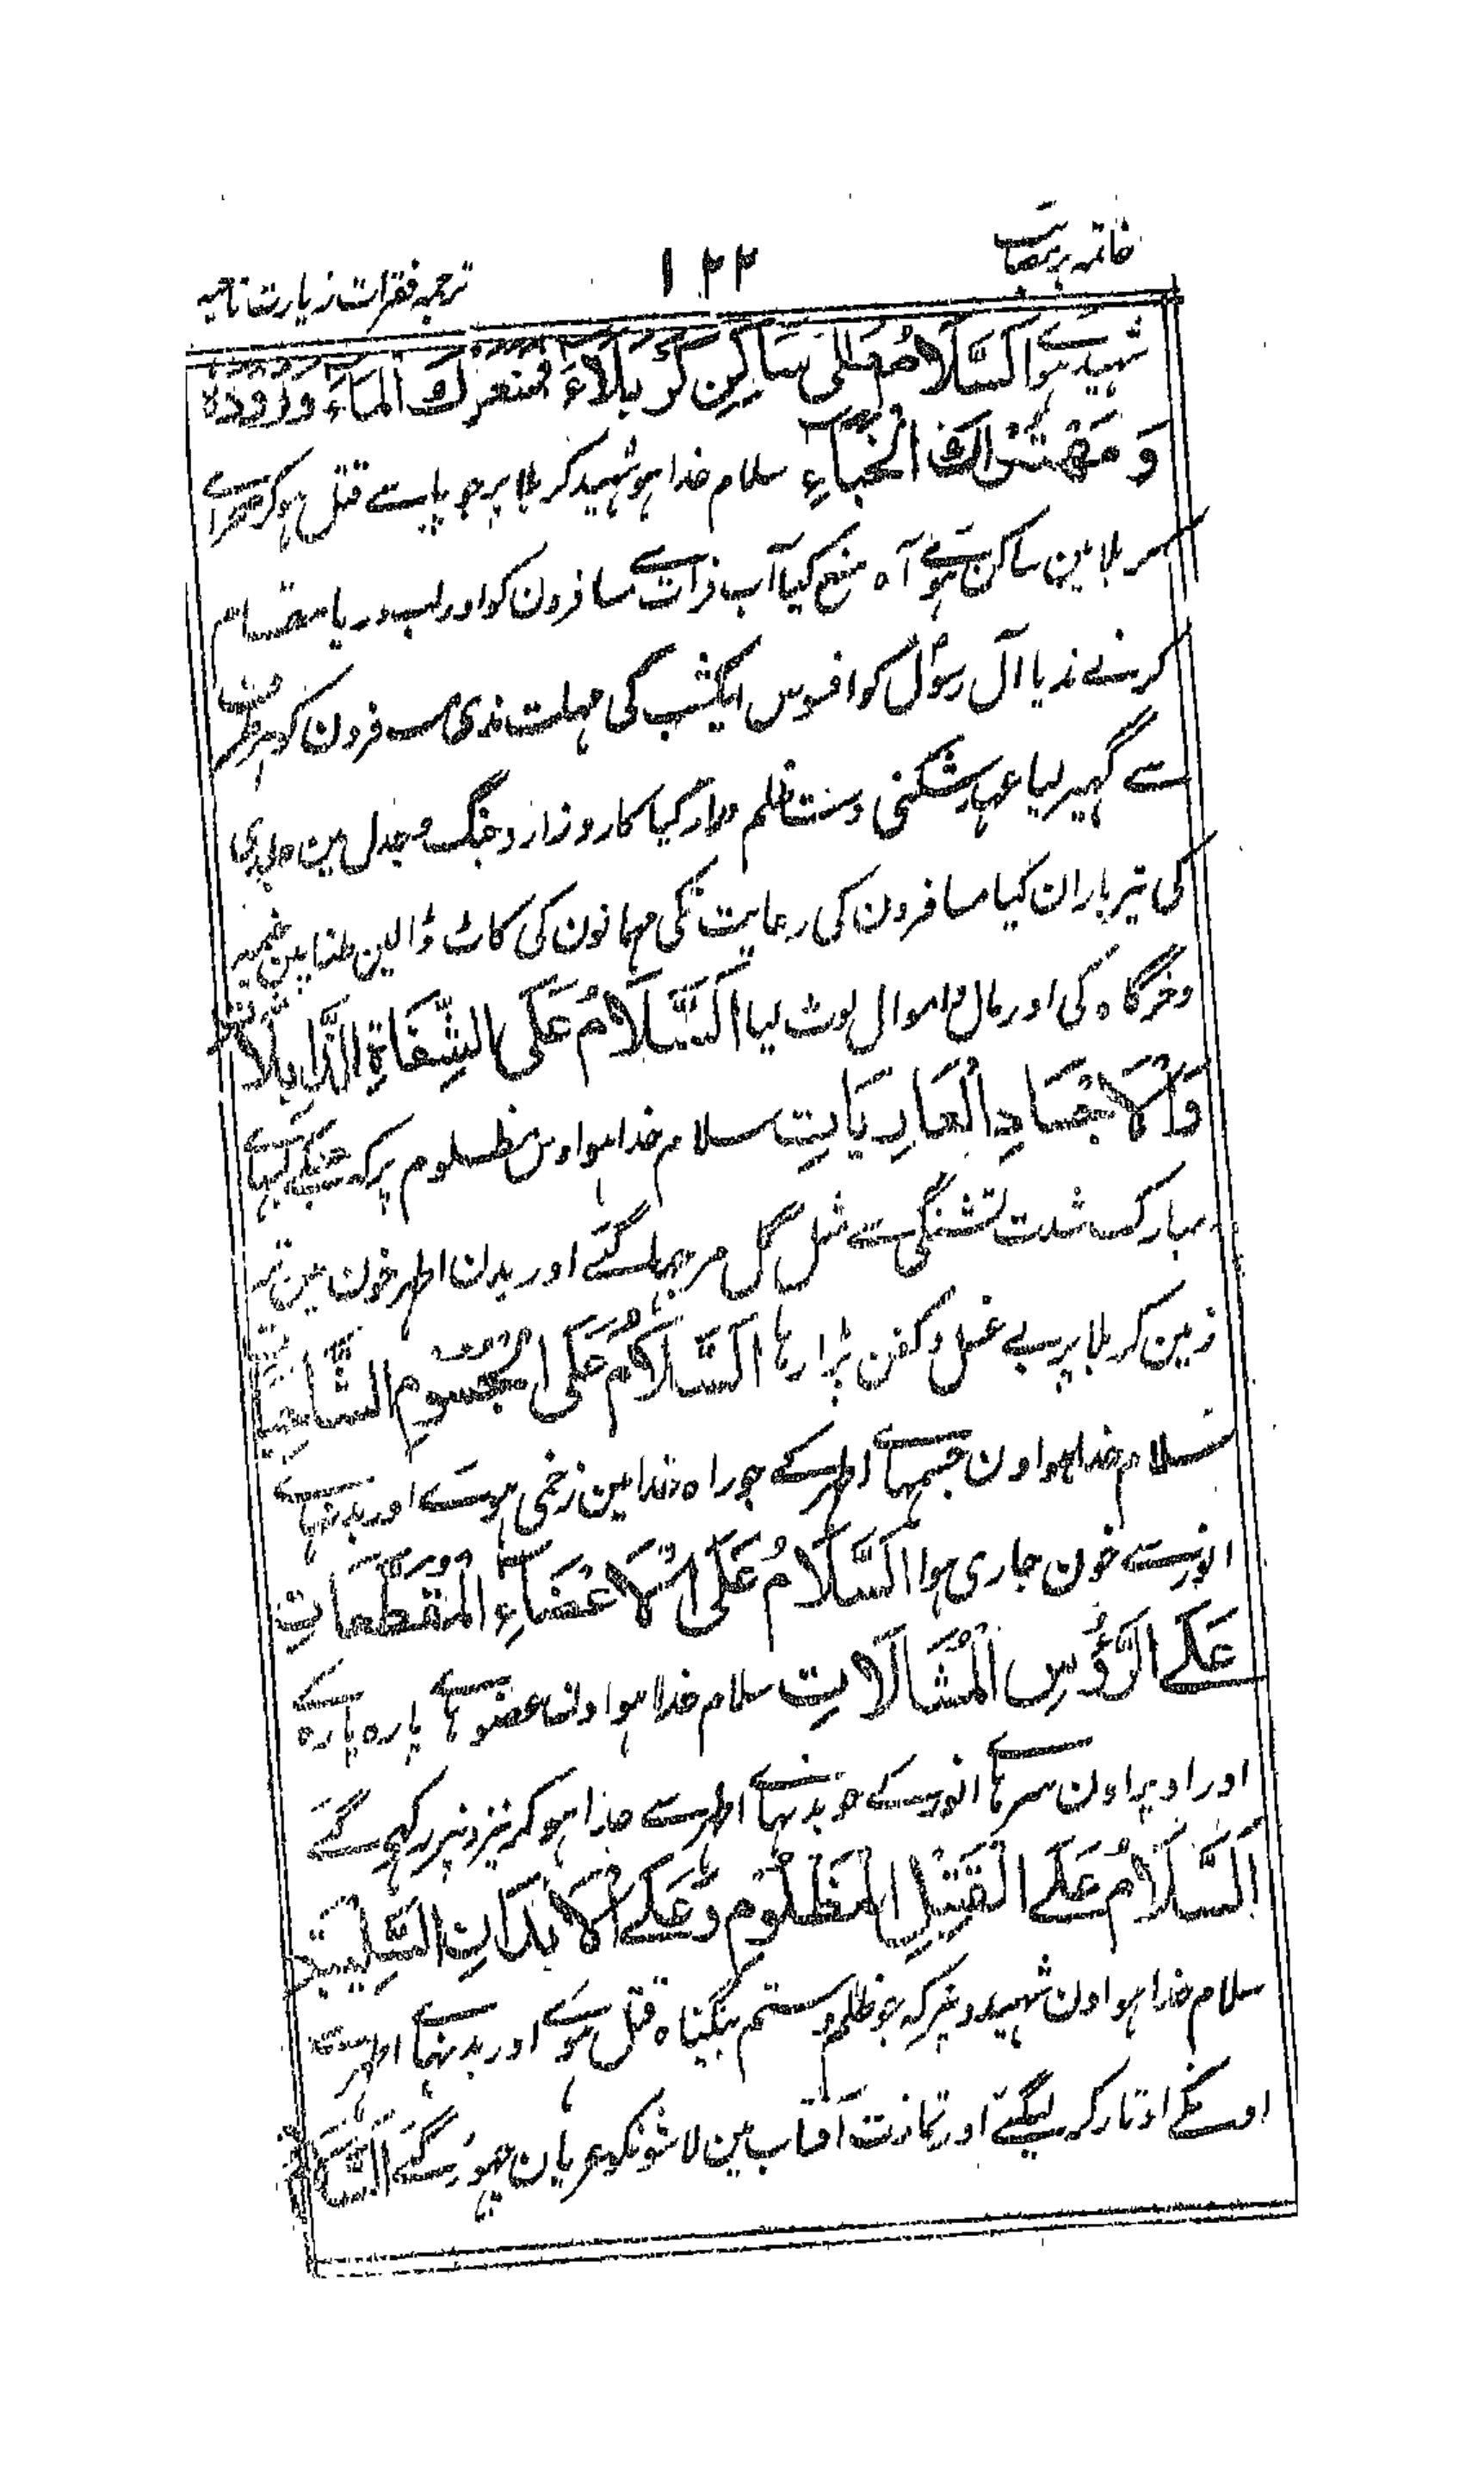 خاتمہ بر مصائب ۱۲۲ ترجمہ فقرات زیارت ناحیہ
شہید ہوے اَلسَّلَامُ عَلٰی سَاکِنِ کَرْبَلَاءَ مُنِعَ الْمَاءَ وَرُوْدَهُ
وَ الْخِبَآءِ سلام خدا ہو شہید کربلا پر جو پیاسے قتل ہو کر صحراے
کربلا مین ساکن ہوے آہ منع کیا آب فرات سے مسافرون کو اور لب دریا مقام
کرنے ندیا آل رسولؐ کو افسوس ایکشب کی مہلت ندی مسافرون کو ہر طرف
سے گہیر لیا عہد شکنی و سنت ظلم و کیا کارو زار و جنگ و جدل مین جلدی
کی تیر باران کیا مسافرون کی رعایت نکی مہمانون کی کاٹ ڈالین طنابین خیمہ
و خرگاہ کی اور مال و اموال لوٹ لیا اَلسَّلَامُ عَلَی الشِّفَاةِ الذَّابِلَاتِ
وَالْاَجْسَادِ الْعَارِیَاتِ سلام خدا ہو اوس مظلوم پر کہ جسکے لبہاے
مبارک شدت تشنگی سے مثل گل مرجہا گئے اور بدن اطہر خون مین تر
زمین کربلا پر بے غسل و کفن پڑا رہا اَلسَّلَامُ عَلَی الْجُسُوْمِ الشَّاحِبَاتِ
سلام خدا ہو اون جسمہاے اطہر کے جو راہ خدا مین زخمی ہوے اور بدنہاے
انور سے خون جاری ہوا اَلسَّلَامُ عَلَی الْاَعْضَاءِ الْمُقَطَّعَاتِ
عَلَے الرُّؤُسِ الْمُشَالَاتِ سلام خدا ہو اون عضوہاے پارہ پارہ کے
اور اوپر اون سرہاے انور کے جو بدنہاے اطہر سے جدا ہو کر نیزونپر رکہے گئے
اَلسَّلَامُ عَلَے الْقَتِیْلِ الْمَظْلُوْمِ وَعَلَے الْاَبْدَانِ السَّلِیْبَةِ
سلام خدا ہو اون شہیدو نپر کہ جو ظلم و ستم بیگناہ قتل ہوے اور بدنہاے اطہر سے
اونکے اوتار کر لیگئے اور تمازت آفتاب مین لاشونکو عریان چہوڑ گئے اَلسَّلَامُ